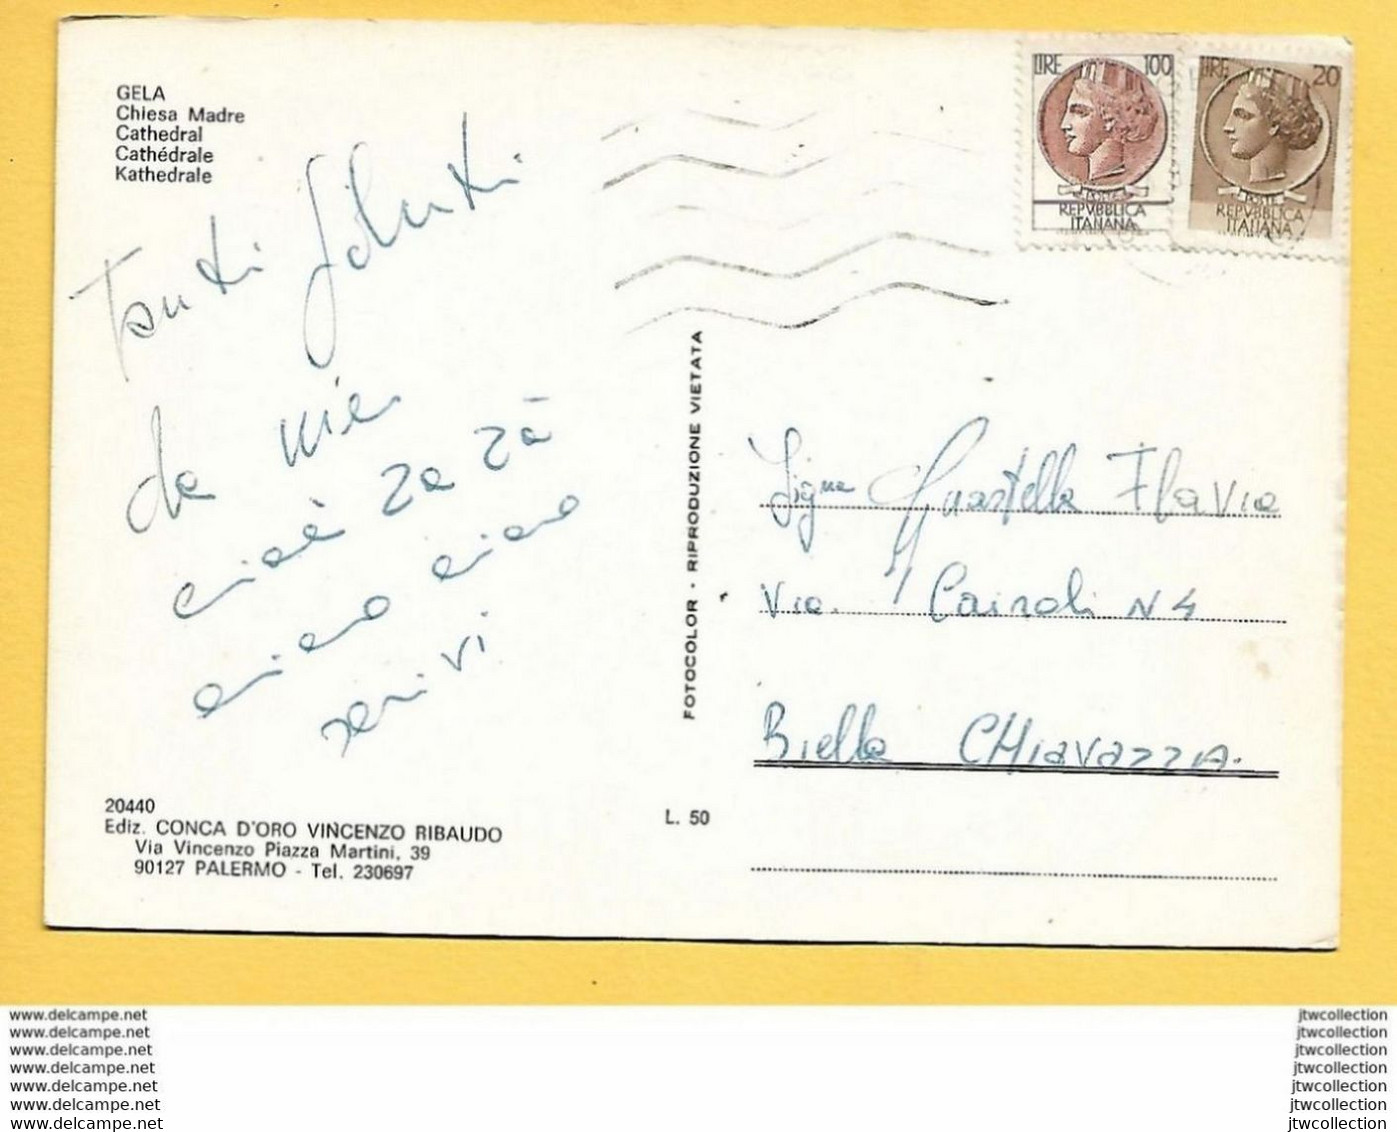 GELA
Chiesa Madre
Cathedral
Cathédrale
Kathedrale
LIRE 100
REPVBBLICA
ITALIANA
LIRE 20
POSTE
REPVBBLICA
ITALIANA
Tanti Saluti
da me
cioè Za Zà
ciao ciao
scrivi
FOTOCOLOR · RIPRODUZIONE VIETATA
Sigra Guastella Flavia
Via Cairoli N 4
Biella CHiavazzA.
20440
Ediz. CONCA D'ORO VINCENZO RIBAUDO
Via Vincenzo Piazza Martini, 39
90127 PALERMO - Tel. 230697
L. 50
www.delcampe.net
www.delcampe.net
www.delcampe.net
www.delcampe.net
www.delcampe.net
www.delcampe.net
www.delcampe.net
jtwcollection
jtwcollection
jtwcollection
jtwcollection
jtwcollection
jtwcollection
jtwcollection